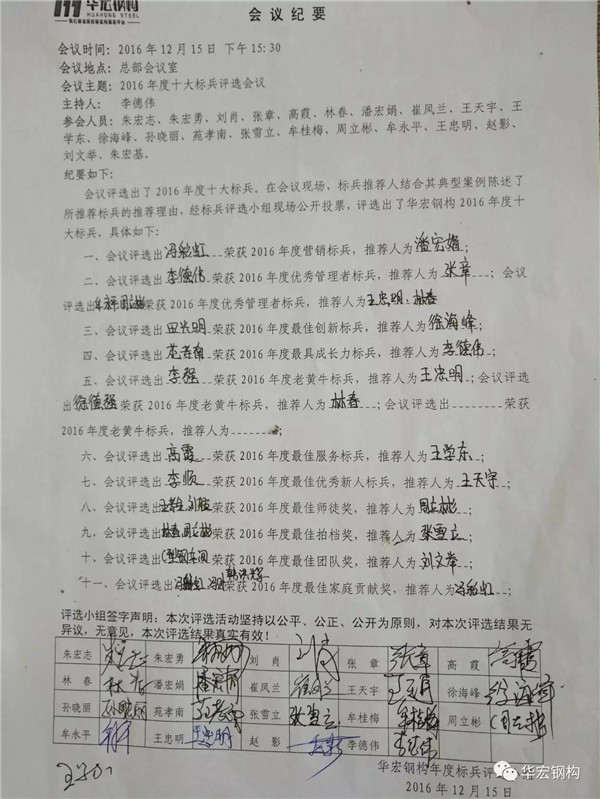 华宏钢构
HUAHONG STEEL
会议纪要
会议时间：2016年12月15日 下午15:30
会议地点：总部会议室
会议主题：2016年度十大标兵评选会议
主持人： 李德伟
参会人员：朱宏志、朱宏勇、刘肖、张章、高霞、林春、潘宏娟、崔凤兰、王天宇、王
学东、徐海峰、孙晓丽、苑孝南、张雪立、牟桂梅、周立彬、牟永平、王忠明、赵影、
刘文举、朱宏基。
纪要如下：
会议评选出了2016年度十大标兵。在会议现场，标兵推荐人结合其典型案例陈述了
所推荐标兵的推荐理由，经标兵评选小组现场公开投票，评选出了华宏钢构2016年度十
大标兵，具体如下：
一、会议评选出冯彩虹荣获2016年度营销标兵，推荐人为潘宏娟；
二、会议评选出李德伟荣获2016年度优秀管理者标兵，推荐人为张章；会议
评选出荣获2016年度优秀管理者标兵，推荐人为王忠明、林春
三、会议评选出田兴明荣获2016年度最佳创新标兵，推荐人为徐海峰；
四、会议评选出苑孝南荣获2016年度最具成长力标兵，推荐人为李德伟；
五、会议评选出李强荣获2016年度老黄牛标兵，推荐人为王忠明；会议评选
出徐德强荣获2016年度老黄牛标兵，推荐人为林春；会议评选出--------荣获
2016年度老黄牛标兵，推荐人为-------；
六、会议评选出高霞荣获2016年度最佳服务标兵，推荐人为王学东；
七、会议评选出李顺荣获2016年度优秀新人标兵，推荐人为王天宇；
八、会议评选出荣获2016年度最佳师徒奖，推荐人为周立彬；
九、会议评选出林春 周立彬荣获2016年度最佳拍档奖，推荐人为张雪立；
十、会议评选出荣获2016年度最佳团队奖，推荐人为刘文举；
十一、会议评选出荣获2016年度最佳家庭贡献奖，推荐人为冯彩虹；
评选小组签字声明：本次评选活动坚持以公平、公正、公开为原则，对本次评选结果无
异议，无意见，本次评选结果真实有效！
朱宏志 朱宏勇 刘肖 刘肖 张章 张章 高霞 高霞
林春 林春 潘宏娟 潘宏娟 崔凤兰 崔凤兰 王天宇 徐海峰 徐海峰
孙晓丽 孙晓丽 苑孝南 苑孝南 张雪立 张雪立 牟桂梅 牟桂梅 周立彬 周立彬
牟永平 王忠明 王忠明 赵影 李德伟 李德伟
华宏钢构年度标兵评选
2016年12月15日
华宏钢构